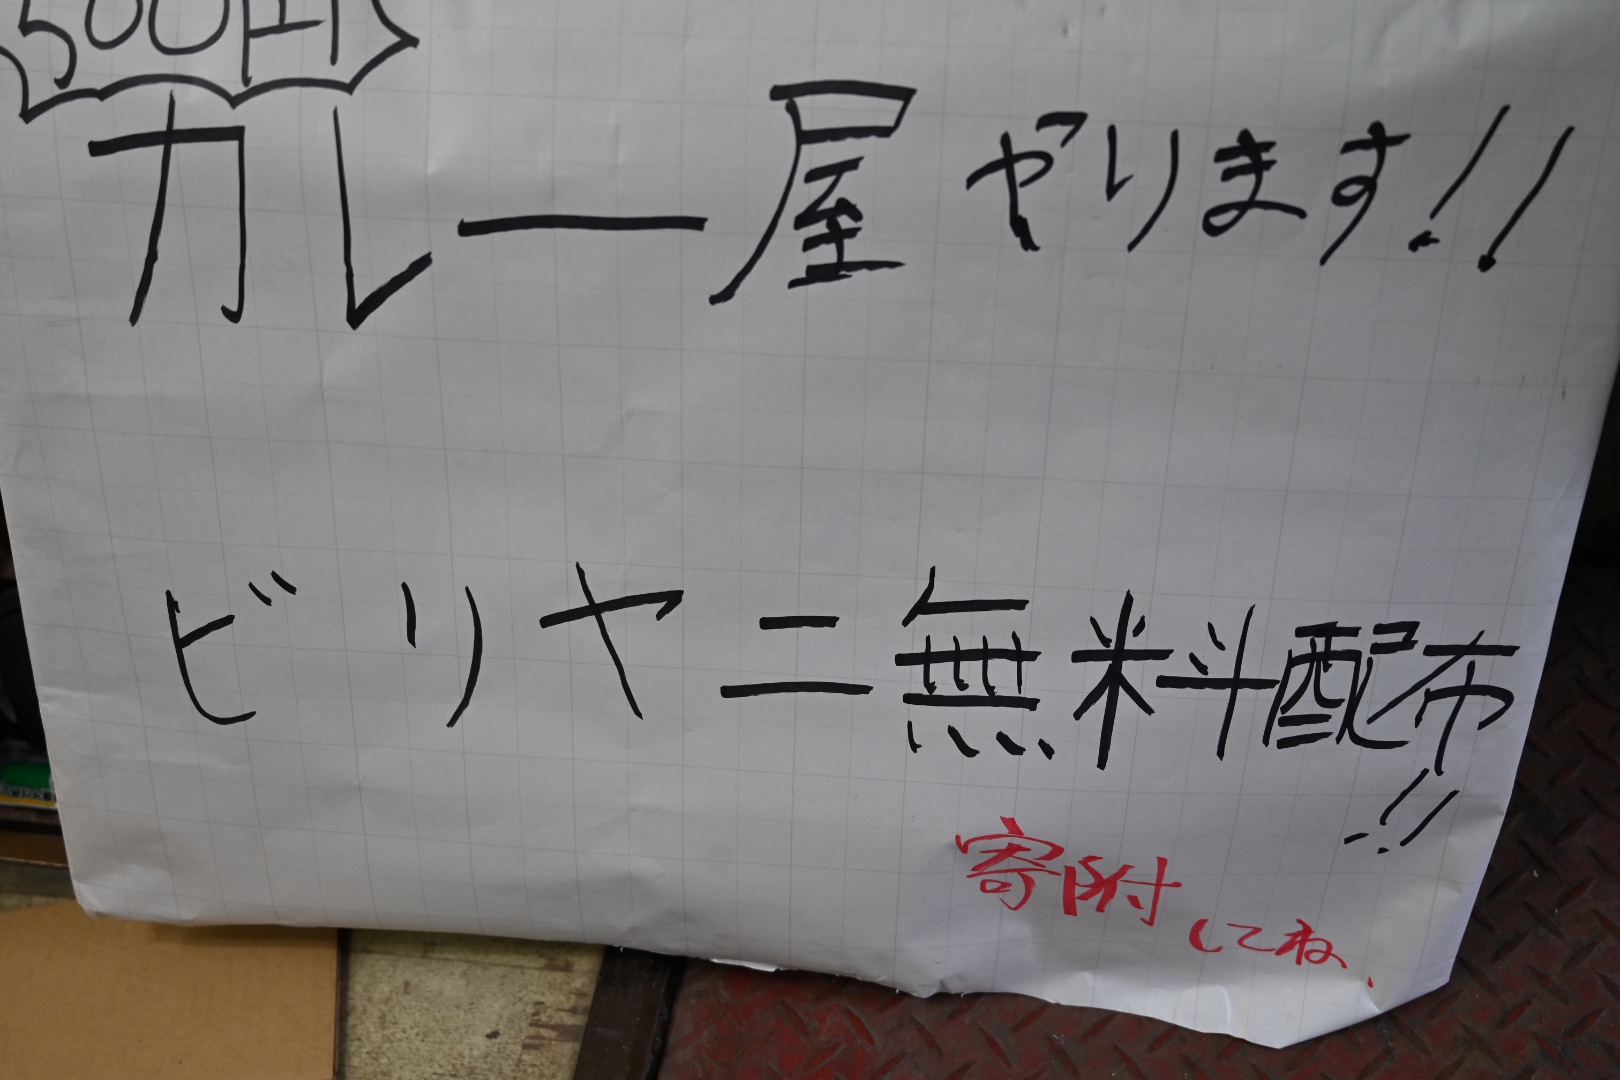 500円
カレー屋やります!!
ビリヤニ無料配布!!
寄附してね、